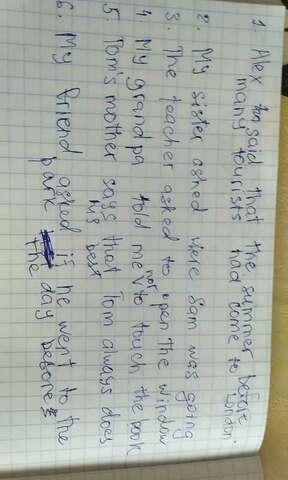 1. Alex said that the summer before
many tourists had come to London.
2. My sister asked were Sam was going
3. The teacher asked to open the window
4 My grandpa told me not to touch the book
5. Tom's mother says that Tom always does
his best
6. My friend asked if he went to the
park the day before